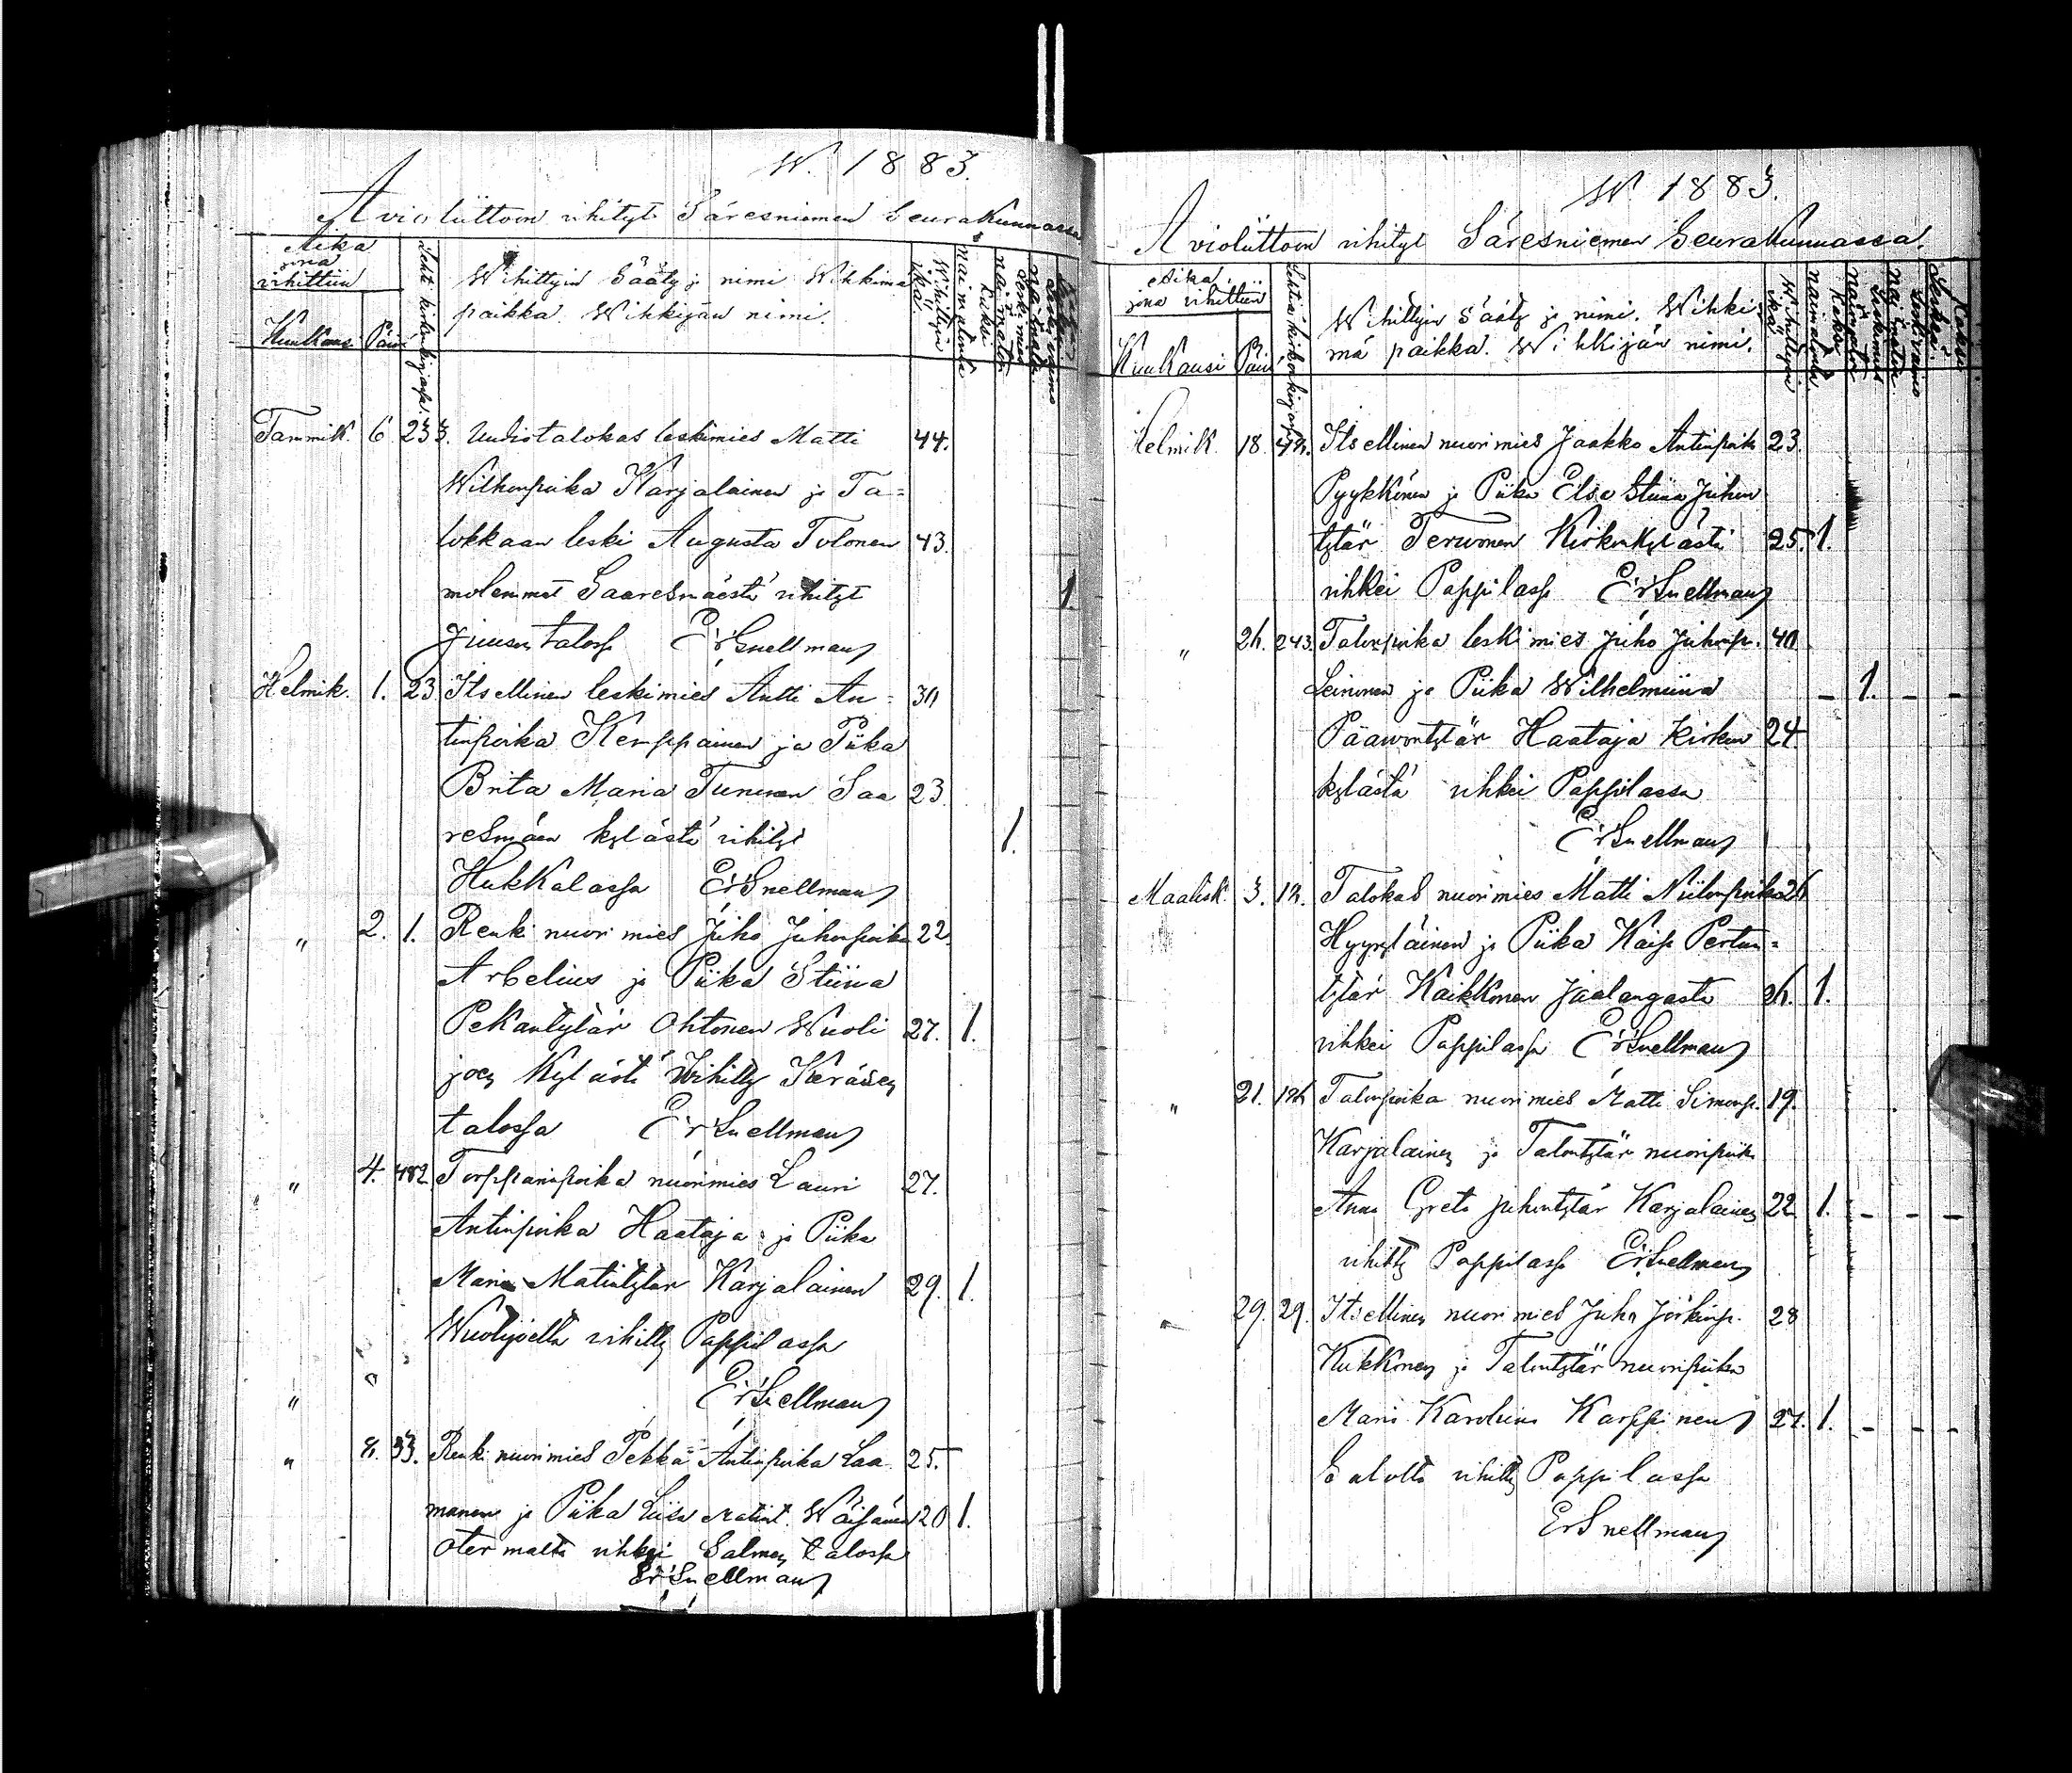 W. 1883.
Avioliittoon vihityt Säresniemen Seurakunnassa
Aika jona vihittiin
Kuukausi Päivä
Leht. kirkonkirjassa.
Wihittyin Sääty ja nimi Wihkimä
paikka. Wihkijän nimi.
Wihittyin ikä.
Tammik. 6. 233. Uudistalokas leskimies Matti 44.
Wilhonpoika Karjalainen ja Ta=
lokkaan leski Augusta Tolonen 43.
molemmat Saaresmäestä vihityt 1.
Jinusen talossa Er Snellman
Helmik. 1. 23 Itsellinen leskimies Antti An=
tinpoika Kemppainen ja Piika
Brita Maria Tuninen Saa 23.
resmäen kylästä vihityt 1.
Hukkalassa Er Snellman
" 2. 1. Renki nuorimies Juho Juhonpoika 22
Arbelius ja Piika Stiina
Pekantytär Ohtonen Wuoli 27. 1.
joen Kylästä Wihitty Keräsen
talossa Er Snellman
" 4. 482 Torpparinpoika nuorimies Lauri 27.
Antinpoika Haataja ja Piika
Maria Matintytär Karjalainen 29. 1.
Wuolijoelta vihitty Pappilassa
" Er Snellman
" 8. 33. Renki nuorimies Pekka Antinpoika Laa 25.
manen ja Piika Liisa Matint. Wäisänen 20 1.
Otermalta vihkei Salmen talossa
Er Snellman
W. 1883.
Avioliittoon vihityt Säresniemen Seurakunnassa.
Aika, jona vihittiin
Kuukausi Päivä
Lehtiä kirkonkirjassa
Wihittyin Sääty ja nimi. Wihki
mä paikka. Wihkijän nimi.
Wihittyin ikä.
Helmik. 18. Itsellinen nuorimies Jaakko Antinpoik 23.
Pyykkönen ja Piika Elsa Stiina Juhon
tytär Terwonen Kirkonkylästä 25. 1.
vihkei Pappilassa Er Snellman
" 243. Talonpoika leskimies Juho Juhonp. 40
Leinonen ja Piika Wilhelmiina – 1. – –
Paawontytär Haataja Kirkon 24.
kylästä vihkei Pappilassa
Er Snellman
Maalisk. 3. Talokas nuorimies Matti Niilonpoika
Hyyryläinen ja Piika Kaisa Pertun=
tytär Kaikkonen Jaalangasta 1.
vihkei Pappilassa Er Snellman
" 21. Talonpoika nuorimies Matti Simonp. 19.
Karjalainen ja Talontytär nuoripiika
Anna Greta Juhontytär Karjalainen 22 1. – – –
vihitty Pappilassa Er Snellman
29. 29. Itsellinen nuorimies Juho Jörkinp. 28
Kukkonen ja Talontytär nuoripiika
Maria Karoliina Karppinen 27. 1. – – –
vihitty Pappilassa
Er Snellman